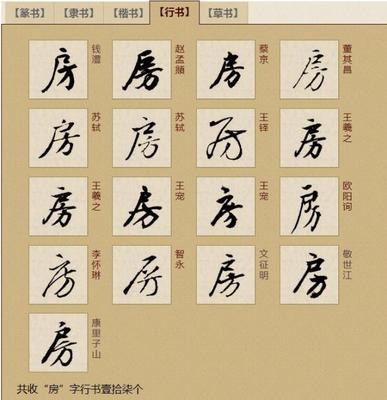 【篆书】 【隶书】 【楷书】 【行书】 【草书】
房 钱澧 房 赵孟頫 房 蔡京 房 董其昌
房 苏轼 房 苏轼 房 王铎 房 王羲之
房 王羲之 房 王宠 房 王宠 房 欧阳询
房 李怀琳 房 智永 房 文征明 房 敬世江
房 康里子山
共收“房”字行书壹拾柒个